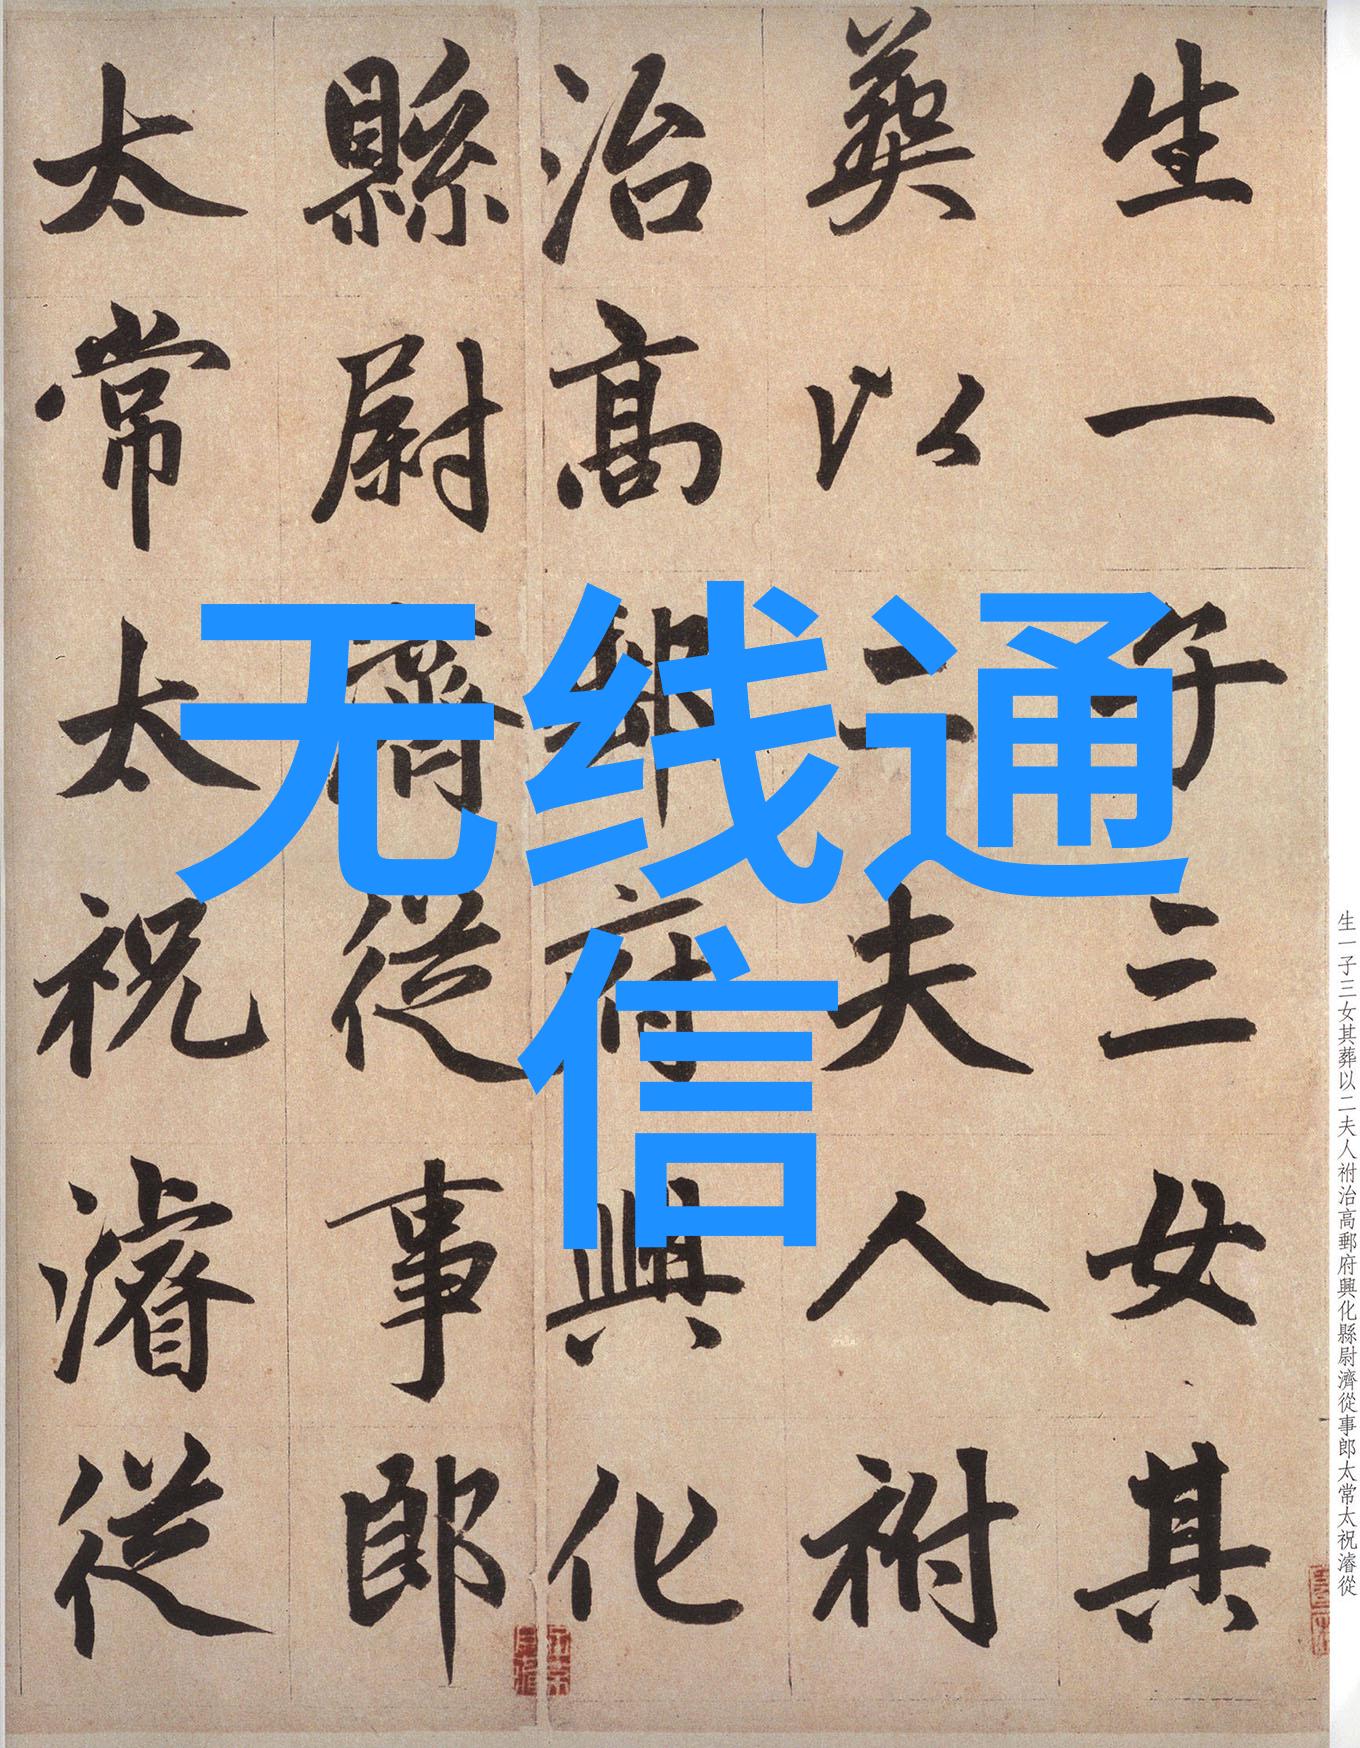 生一子三女其
葬以二夫人祔
治高郵府興化
縣尉濟從事郎
太常太祝濬從
无线通
信
生一子三女其葬以二夫人祔治高郵府興化縣尉濟從事郎太常太祝濬從